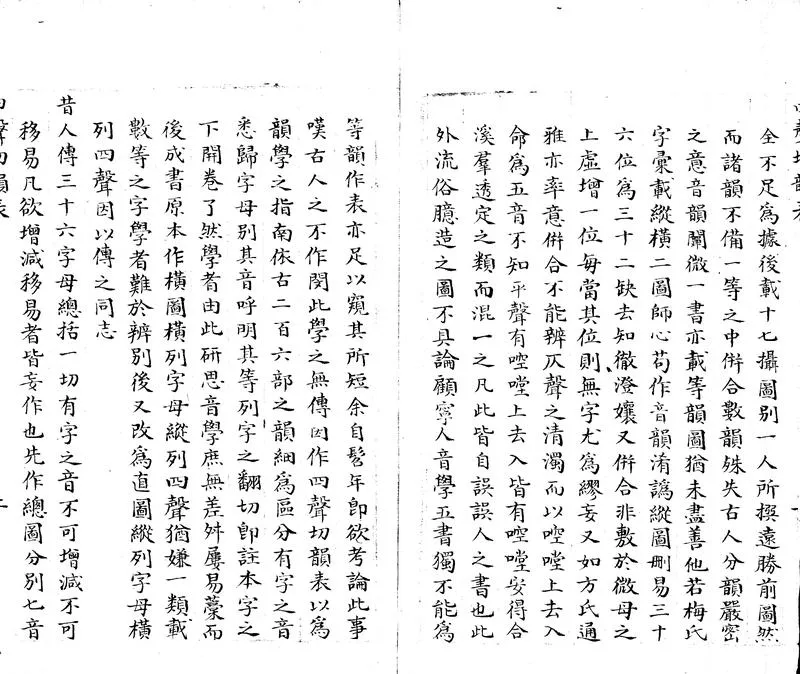 全不足爲據後載十七攝圖別一人所撰遠勝前圖然
而諸韻不備一等之中併合數韻殊失古人分韻嚴密
之意音韻闡微一書亦載等韻圖猶未盡善他若梅氏
字彙載縱橫二圖師心苟作音韻淆譌縱圖刪易三十
六位爲三十二缺去知徹澄孃又併合非敷於微母之
上虛增一位每當其位則無字尤爲繆妄又如方氏通
雅亦率意併合不能辨仄聲之清濁而以啌嘡上去入
命爲五音不知平聲有啌嘡上去入皆有啌嘡安得合
溪羣透定之類而混一之凡此皆自誤誤人之書也此
外流俗臆造之圖不具論顧寧人音學五書獨不能爲
等韻作表亦足以窺其所短余自髫年卽欲考論此事
嘆古人之不作閔此學之無傳因作四聲切韻表以爲
韻學之指南依古二百六部之韻細爲區分有字之音
悉歸字母別其音呼明其等列字之翻切卽註本字之
下開卷了然學者由此研思音學庶無差舛屢易藁而
後成書原本作橫圖橫列字母縱列四聲猶嫌一類載
數等之字學者難於辨別後又改爲直圖縱列字母橫
列四聲因以傳之同志
昔人傳三十六字母總括一切有字之音不可增減不可
移易凡欲增減移易者皆妄作也先作總圖分別七音